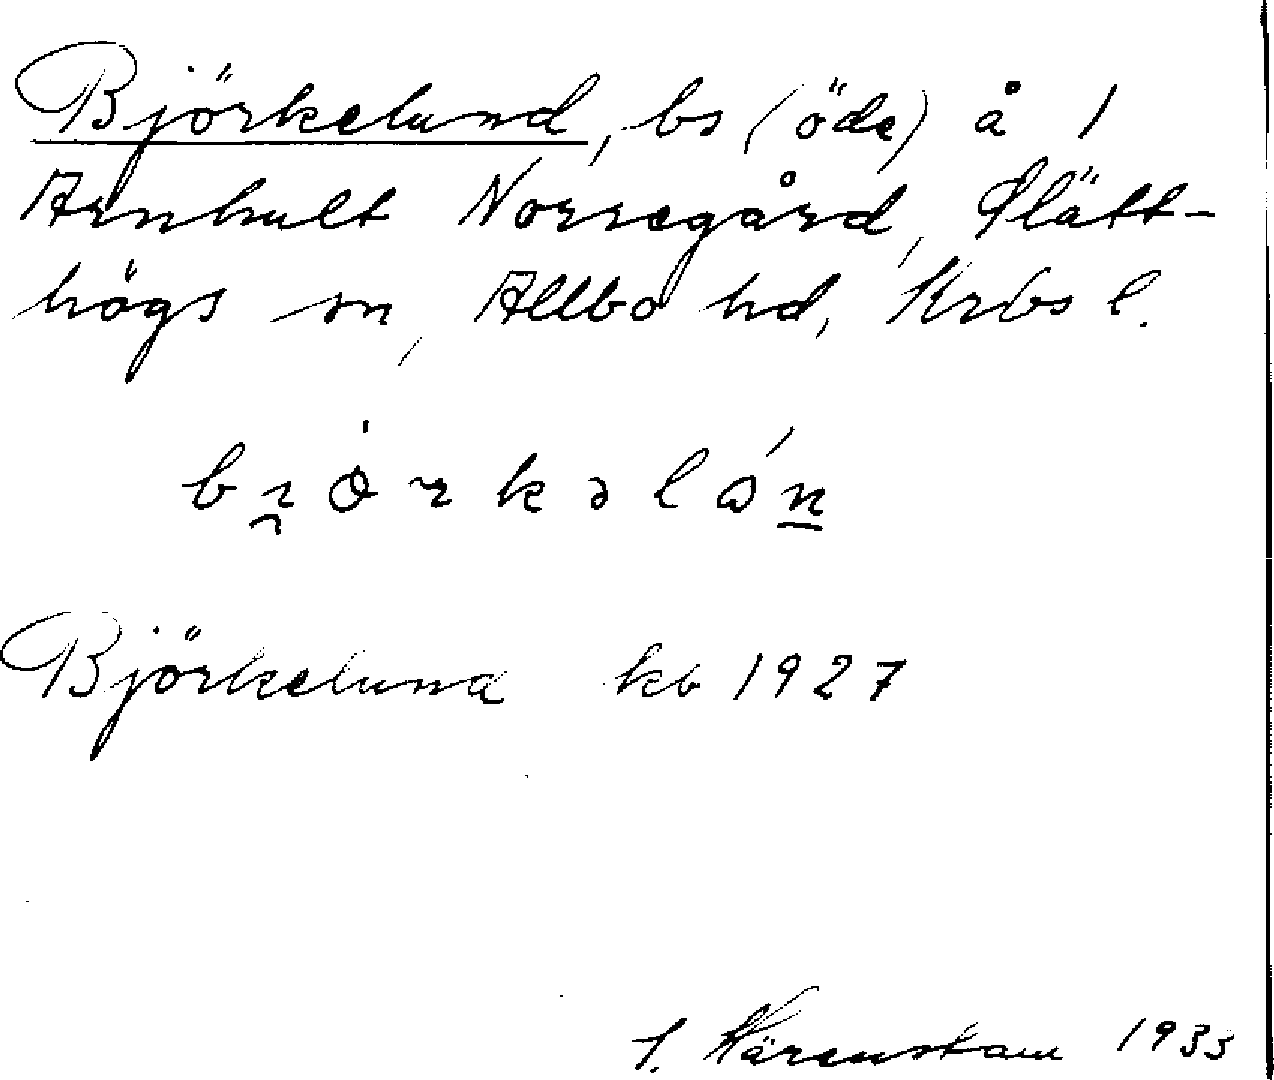 Björkelund, bs (öde) å 1
Arnhult Norregård, Slätt-
högs sn, Allbo hd, Krbs l.
bi̯ȯ́rkəlón̲
Björkelund kb 1927
1933